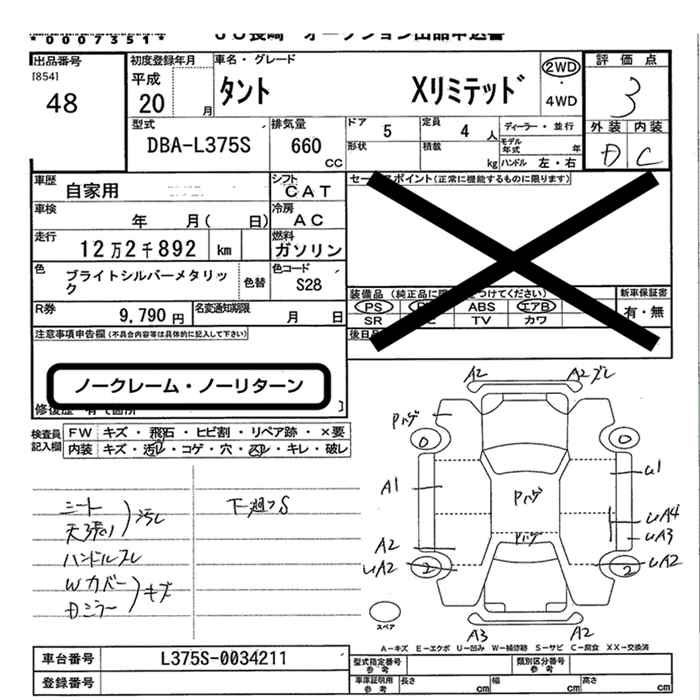 *0007351*
JU長崎 オークション出品申込書
出品番号
[854]
48
初度登録年月
平成
20 月
車名・グレード
タント Xリミテッド
2WD
・
4WD
評価点
3
外装 内装
D C
型式
DBA-L375S
排気量
660
CC
ドア 5
定員 4 人
ディーラー・並行
形状
積載 kg
モデル年式 年
ハンドル 左・右
車歴
自家用
シフト
CAT
車検
年 月( 日)
冷房
AC
走行
12万2千892 km
燃料
ガソリン
色
ブライトシルバーメタリック
色替
色コード
S28
R券
9,790円
名変通知期限
月 日
セールスポイント(正常に機能するものに限ります)
装備品 (純正品に限
をつけてください)
新車保証書
有・無
PS
ABS エアB
SR
TV カワ
後日
注意事項申告欄(不具合内容等は具体的に記入して下さい)
ノークレーム・ノーリターン
修復歴
検査員
記入欄
FW キズ・飛石・ヒビ割・リペア跡・×要
内装 キズ・汚レ・コゲ・穴・スレ・キレ・破レ
シート
天張り
汚レ
ハンドルスレ
Wカバー
Dミラー
キズ
下廻フS
A2
A2ズレ
Pハゲ
0
0
A1
U1
Pハゲ
Pハゲ
UA4
UA3
A2
UA2
2
2
UA2
A3
A2
スペア
A-キズ E-エクボ U-凹み W-補修跡 S-サビ C-腐食 XX-交換済
車台番号
L375S-0034211
登録番号
型式指定番号
参考
類別区分番号
参考
車庫証明用
参考
長さ cm
幅 cm
高さ cm